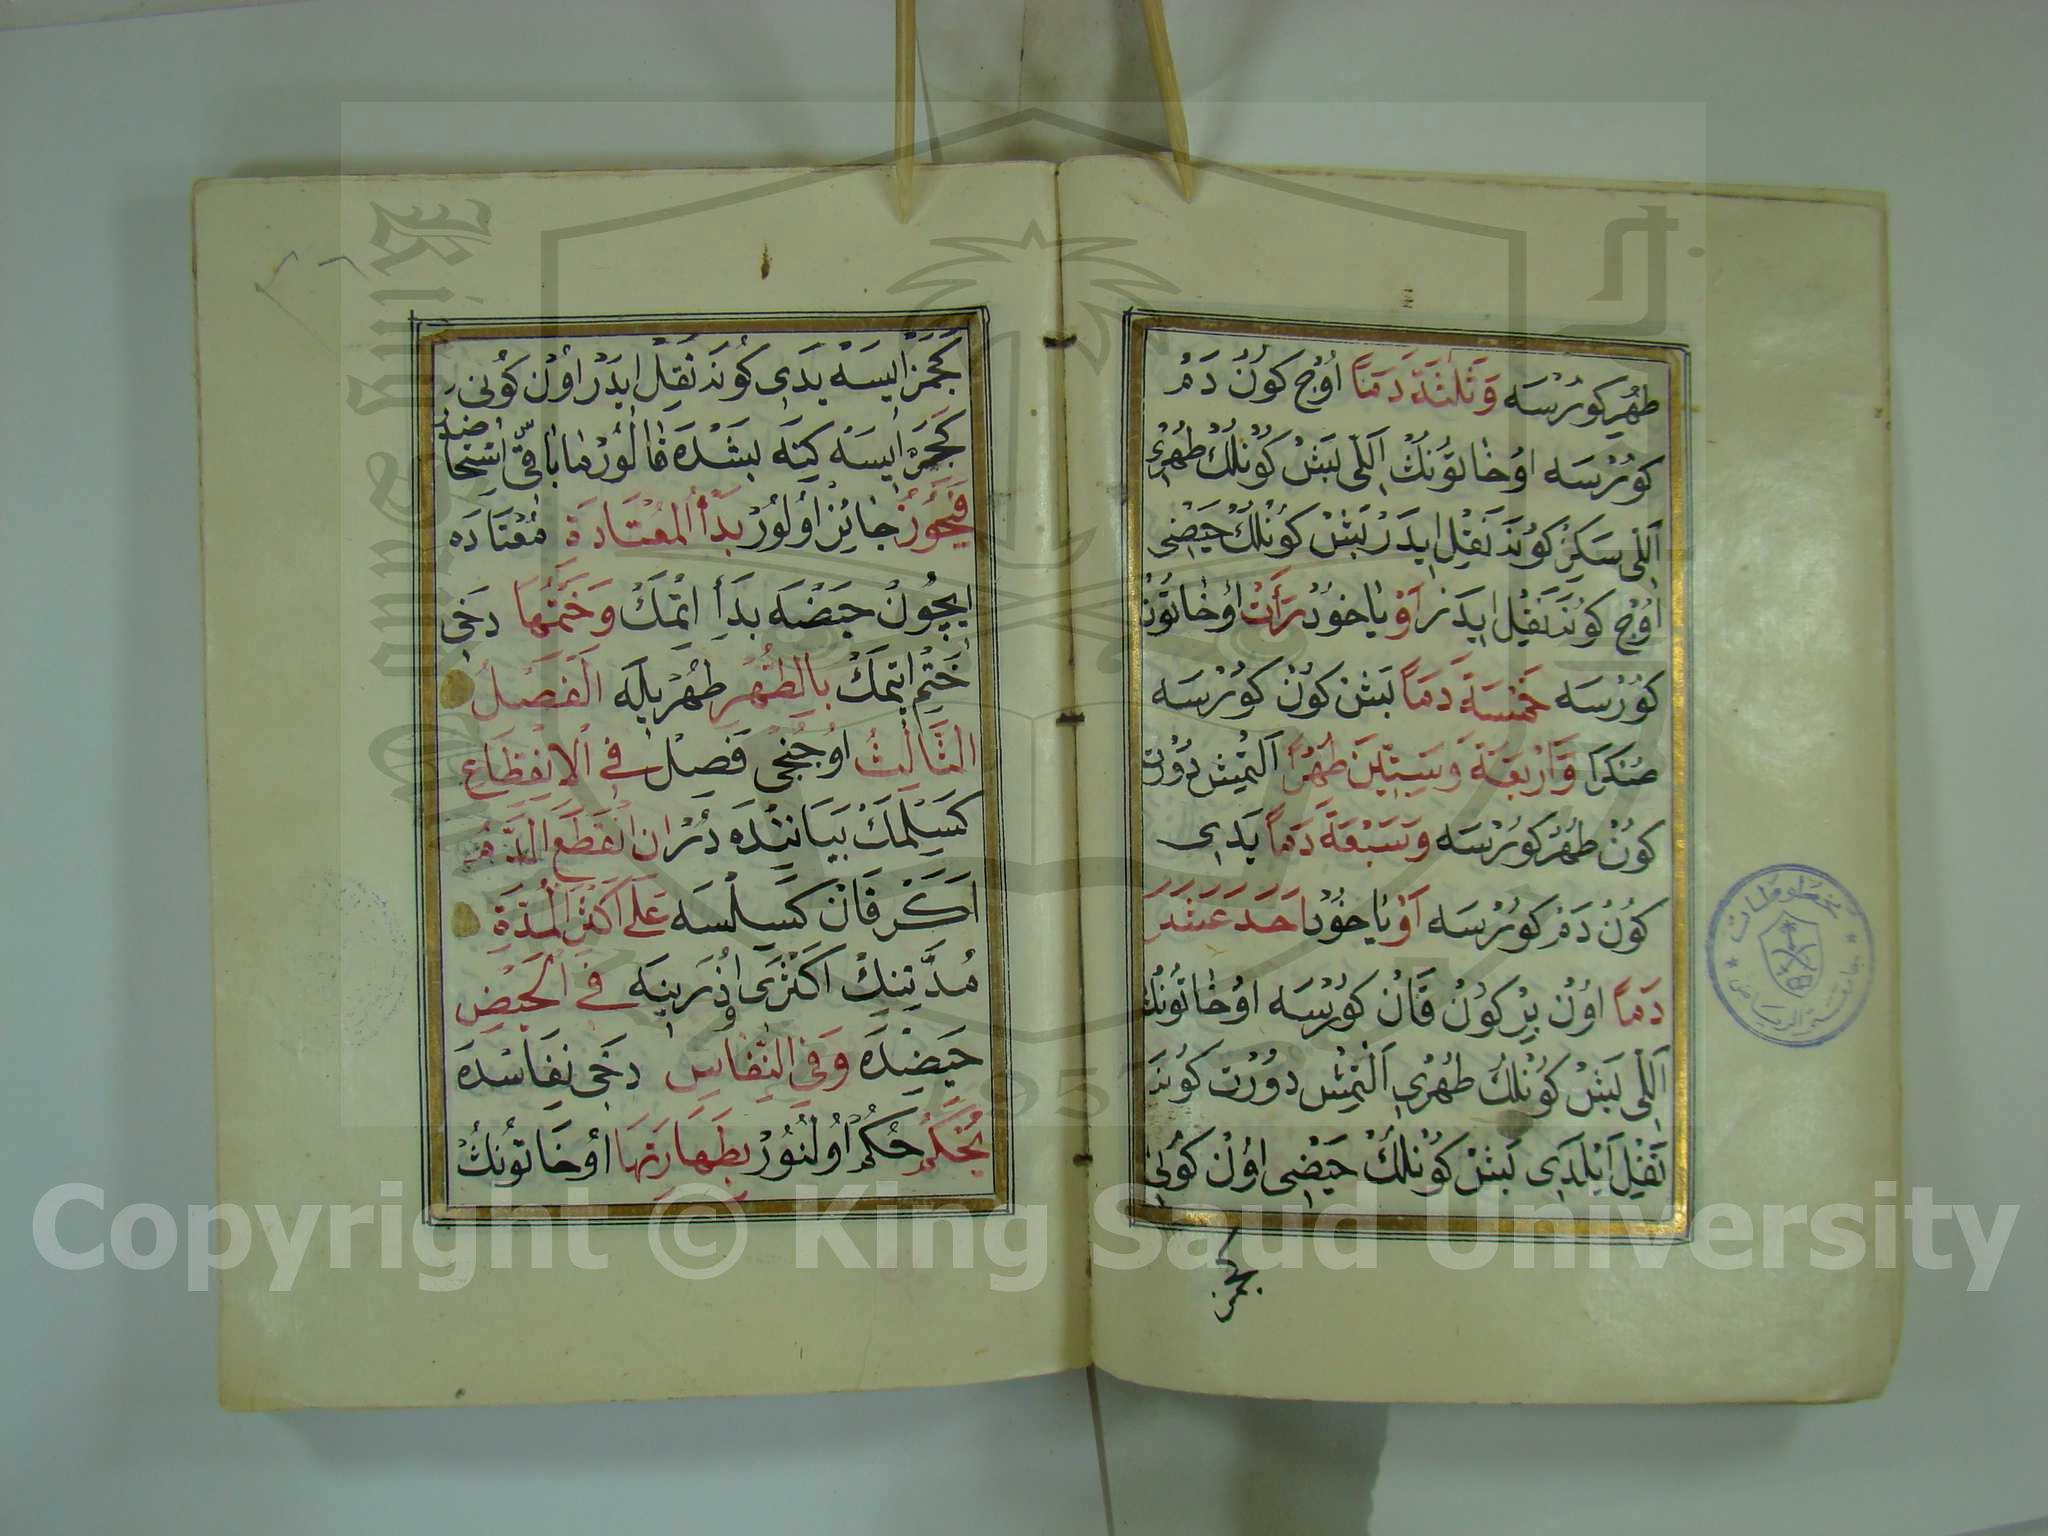 طُهُرْ كورُرْسَه وَثَلٰثَةً دَمًا اُوْچ كُونْ دَمْ
كورُرْسَه اوُخٰاتوُنُكْ اَللِى بَشْ كوُنْلُكْ طُهُرِى
اَللِى سَكِزْ كوُنَه نَقِلْ ايدَرْ بَشْ كوُنْلُكْ حَيْضِى
اوُچ كوُنَه نَقِلْ ايدَرْ اَوْ يٰاخوُدْ رَأَتْ اوُخٰاتوُنْ
كوُرُرْسَه خَمْسَةً دَمًا بَشْ كوُنْ كوُرُرْسَه
صُكْرَا وَاَرْبَعَةً وَسِتِّينَ طُهْرًا اَلتْمِشْ دوُرْتْ
كوُنْ طُهُرْ كوُرُرْسَه وَسَبْعَةً دَمًا يَدِى
كوُنْ دَمْ كوُرُرْسَه اَوْ يٰاخوُدْ اَحَدَ عَشَرَ
دَمًا اوُنْ بِرْ كوُنْ قَانْ كوُرُرْسَه اوُخٰاتوُنُكْ
اَللِى بَشْ كوُنْلُكْ طُهُرِى اَلتْمِشْ دوُرْتْ كوُنَه
نَقِلْ اَيْلَدِى بَشْ كوُنْلُكْ حَيْضِى اوُنْ كوُنِى
كجمز
كَچْمَزْ ايسَه يَدِى كُونَه نَقِلْ ايدَرْ اوُنْ كوُنى
كَچَرْ ايسَه كِنَه بَشْدَه قٰالوُرْ مٰا بٰاقِى اسْتِحَاضَه
فَيَجُوزُ جٰائِزْ اوُلوُرْ بَدْأُ الْمُعْتَادَةِ مُعْتَادَه
ايچُونْ حَيْضَه بَدَأ اتْمَكْ وَخَتْمُهَا دَخِى
خَتِمْ ايتمَكْ بِالطُّهْرِ طُهُرْ يلَه اَلْفَصْلُ
الثَّالِثُ اوُچُنْجِى فَصِلْ فِى الْاِنْقِطَاعِ
كَسِلْمَكْ بَيَانِنْدَه دُرْ اِنِ انْقَطَعَ الدَّمُ
اَكَرْ قَانْ كَسِلُسَه عَلَى اَكْثَرِ الْمُدَّةِ
مُدَّتِنِكْ اَكْثَرِى اوُزَرِينَه فِى الْحَيْضِ
حَيْضِدَه وَفِى النِّفَاسِ دَخِى نِفَاسْدَه
يُحْكَمُ حُكُمْ اوُلُنوُرْ بِطَهَارَتِهَا اوُخَاتوُنُكْ
Copyright © King Saud University